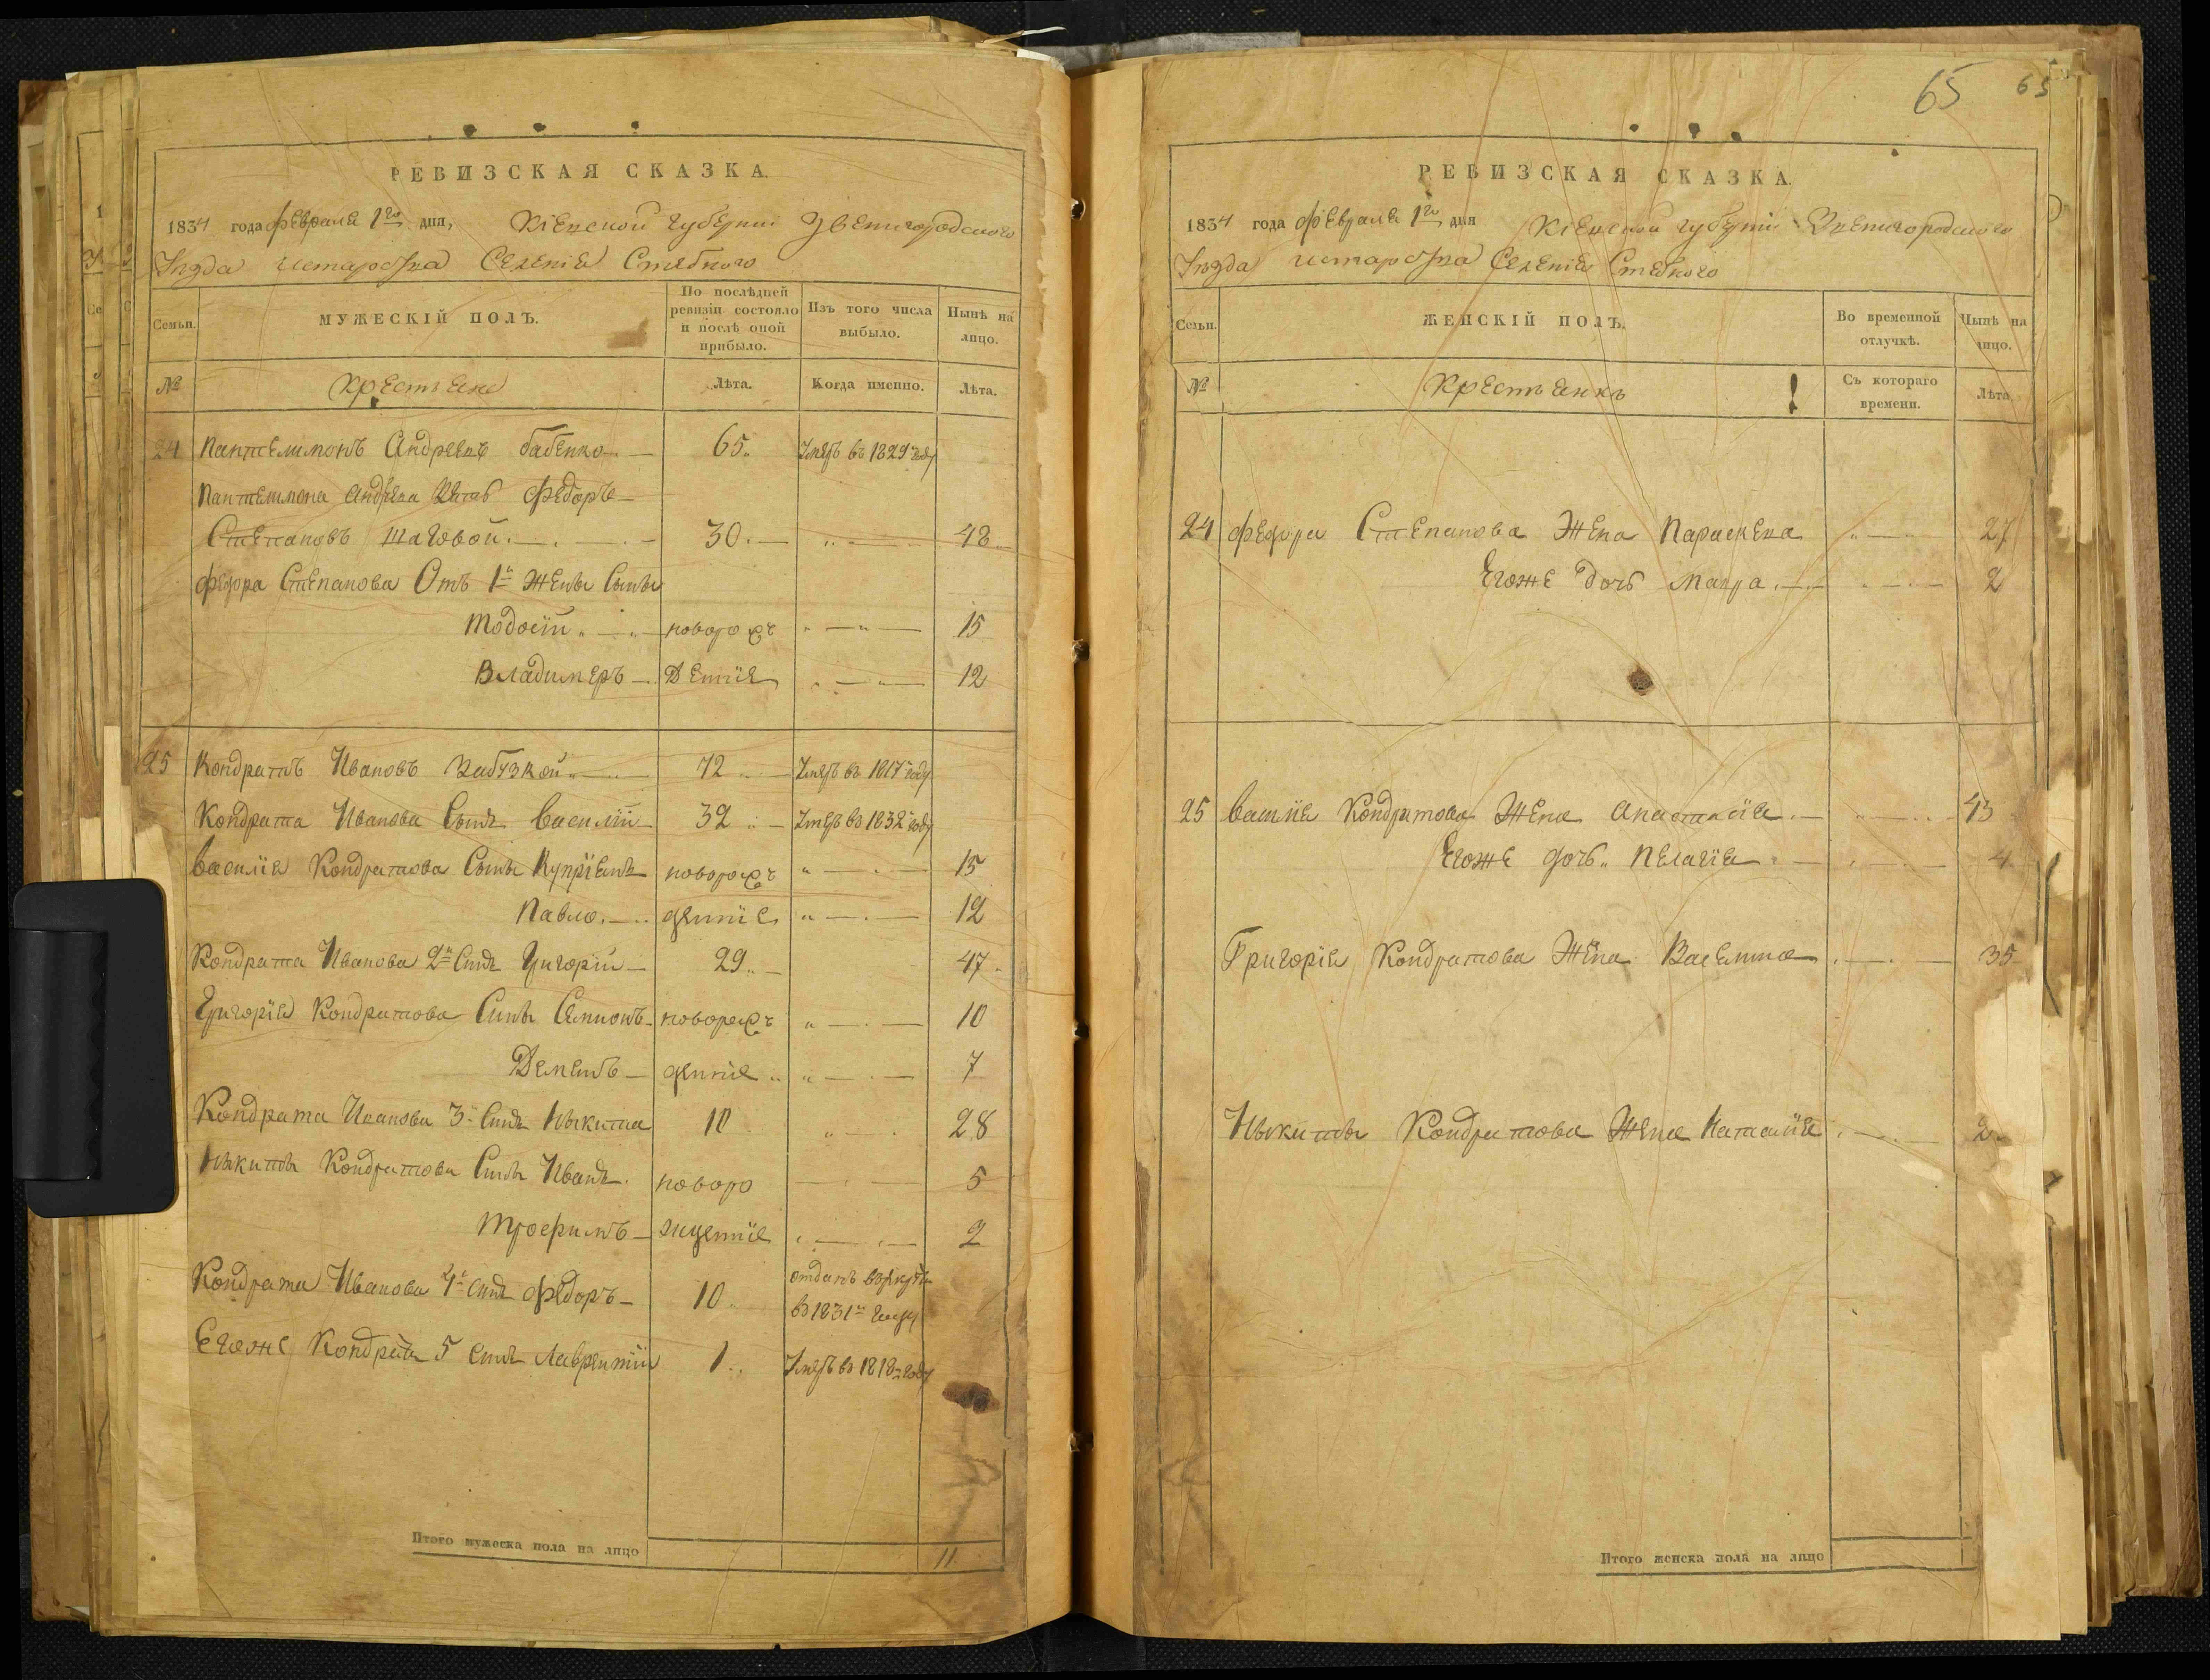 65
65
РЕВИЗСКАЯ СКАЗКА.
1834 года февраля 1го дня, Кіевской губерніи Звенигородского
Уезда Селенія Стебного
Семьи.
МУЖЕСКІЙ ПОЛЪ.
По послѣдней ревизіи состояло и послѣ оной прибыло.
Изъ того числа выбыло.
Нынѣ на лицо.
№
Крестьяне
Лѣта.
Когда именно.
Лѣта.
24 Пантелимонъ Андреевъ Бабенко 65 Умеръ въ 1829 году
Пантелимона Андреева Федоръ
Степановъ 30 48
Федора Степанова Отъ 1й Жены Сыны
Тодосій новорож 15
Владимеръ Детіе 12
25 Кондратъ Ивановъ 72 Умеръ въ 1817 году
Кондрата Иванова Сынъ Василій 32 Умеръ въ 1832 году
Василія Кондратова Сыны Купріянъ новорож 15
Павло детіе 12
Кондрата Иванова 2й Синъ Григорій 29 47
Григорія Кондратова Сины новорож 10
Деменъ детіе 7
Кондрата Иванова 3й Синъ Никита 10 28
Никиты Кондратова Сины Иванъ новоро 5
Трофимъ ждетіе 2
Кондрата Иванова 4й Синъ Федоръ 10 отданъ
въ 1831м году
Егоже Кондрата 5 Синъ Лаврентій 1 Умеръ въ 1818 году
Итого мужеска пола на лицо 11
РЕВИЗСКАЯ СКАЗКА.
1834 года февраля 1го дня Кіевской губерніи Звенигородского
Уезда Селенія Стебного
Семьи.
ЖЕНСКІЙ ПОЛЪ.
Во временной отлучкѣ.
Нынѣ на лицо.
№
Крестьянкъ
Съ котораго времени.
Лѣта
24 Федора Степанова Жена Параскева 27
Егоже Дочь Мавра 2
25 Василія Кондратова Жена Анастасія 43
Егоже дочь Пелагія 4
Григорія Кондратова Жена 35
Никиты Кондратова Жена Наталія
Итого женска пола на лицо